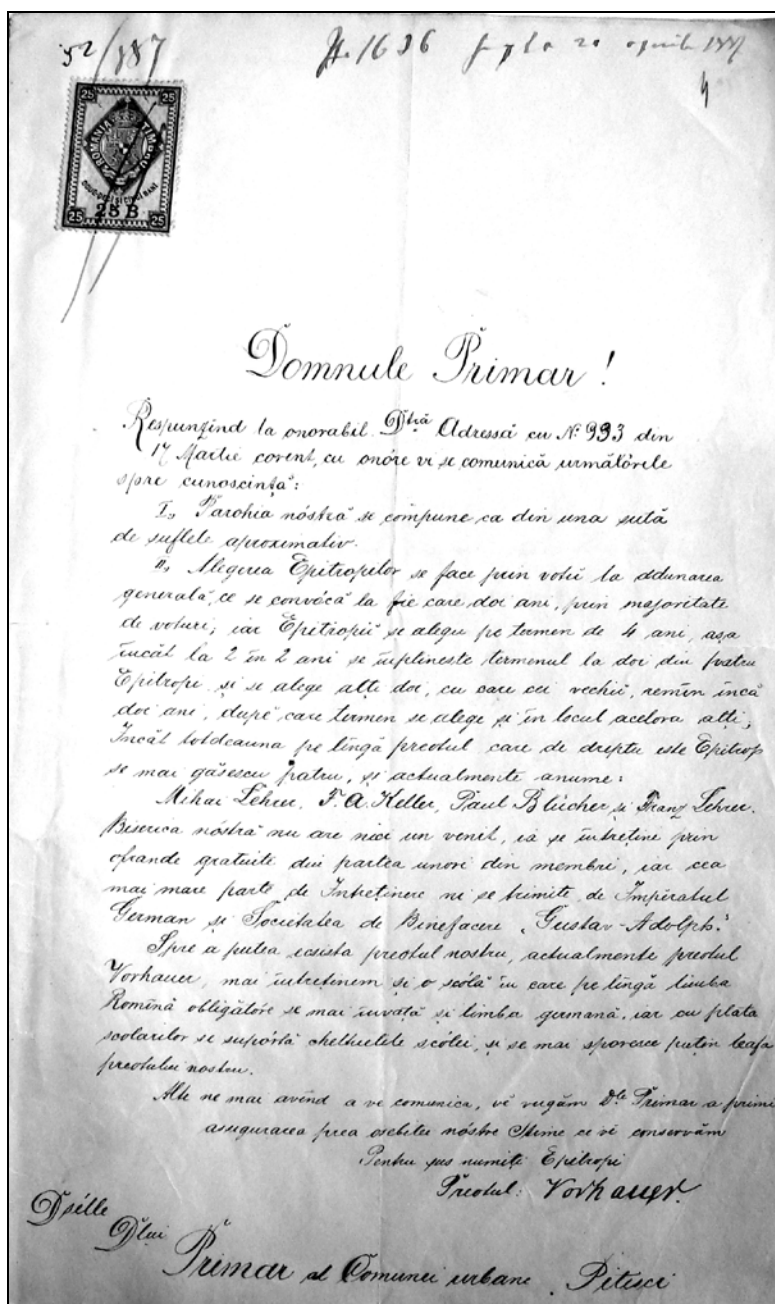 52/187 No 1636
20 aprilie 188
4
25 25
ROMANIA TIMBRU
25 B
25 25
Domnule Primar!
Respunzînd la onorabil. Dtră Adressă cu No. 993 din
17 Martie corent, cu onóre vi se comunică următórele
spre cunoscință:
I, Parohia nóstră se compune ca din una sută
de suflete aproximativ.
II, Alegerea Epitropilor se face prin votu la adunarea
generală, ce se convócă la fie care doi ani, prin majoritate
de voturi; iar Epitropii se alegu pe termen de 4 ani, așa
încăt la 2 în 2 ani se înplinește termenul la doi din patru
Epitropi și se alege alți doi, cu care cei vechii, remîn încă
doi ani, după care termen se alege și în locul acelora alți;
Încăt totdeauna pe lîngă preotul care de dreptu este Epitrop
se mai găsescu patru, și actualmente anume:
Mihai Lehrer, F. A. Keller, Paul Blücher și Franz Lehrer.
Biserica nóstră nu are nici un venit, ia se întreține prin
ofrande gratuite din partea unori din membri, iar cea
mai mare parte de Întreținere ni se trimite de Împeratul
German și Societatea de Binefacere „Gustav-Adolph."
Spre a putea ecsista preotul nostru, actualmente preotul
Vorhauer, mai întreținem și o scólă în care pe lîngă limba
Romînă obligatóre se mai învață și limba germană, iar cu plata
scolarilor se supórtă cheltuelele scólei, și se mai sporesce puțin leafa
preotului nostru.
Alte ne mai avînd a ve comunica, vĕ rugăm Dle Primar a primi
asigurarea prea osebitei nóstre Stime ce vĕ conservăm
Pentru sus numiți Epitropi
Preotul: Vorhauer.
Dsélle
Dlui
Primar al Comunei urbane Pitesci